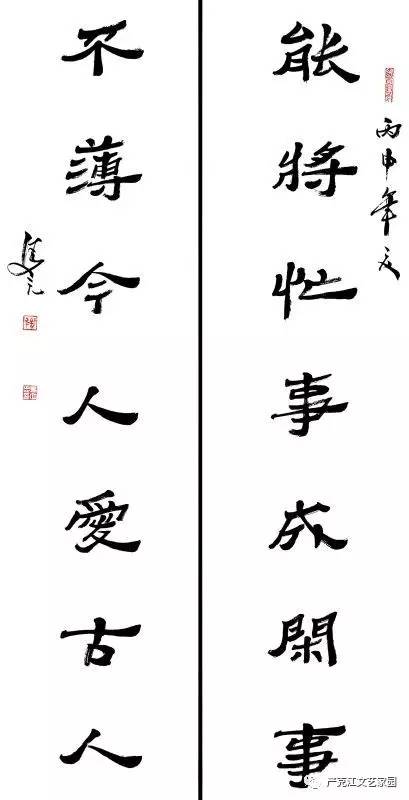 丙申年
能將忙事成閑事
不薄今人愛古人
严克江文艺家园